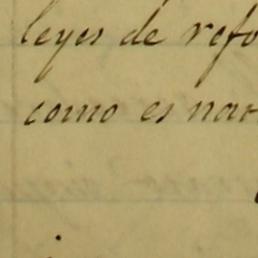 leyes de refo
como es nav